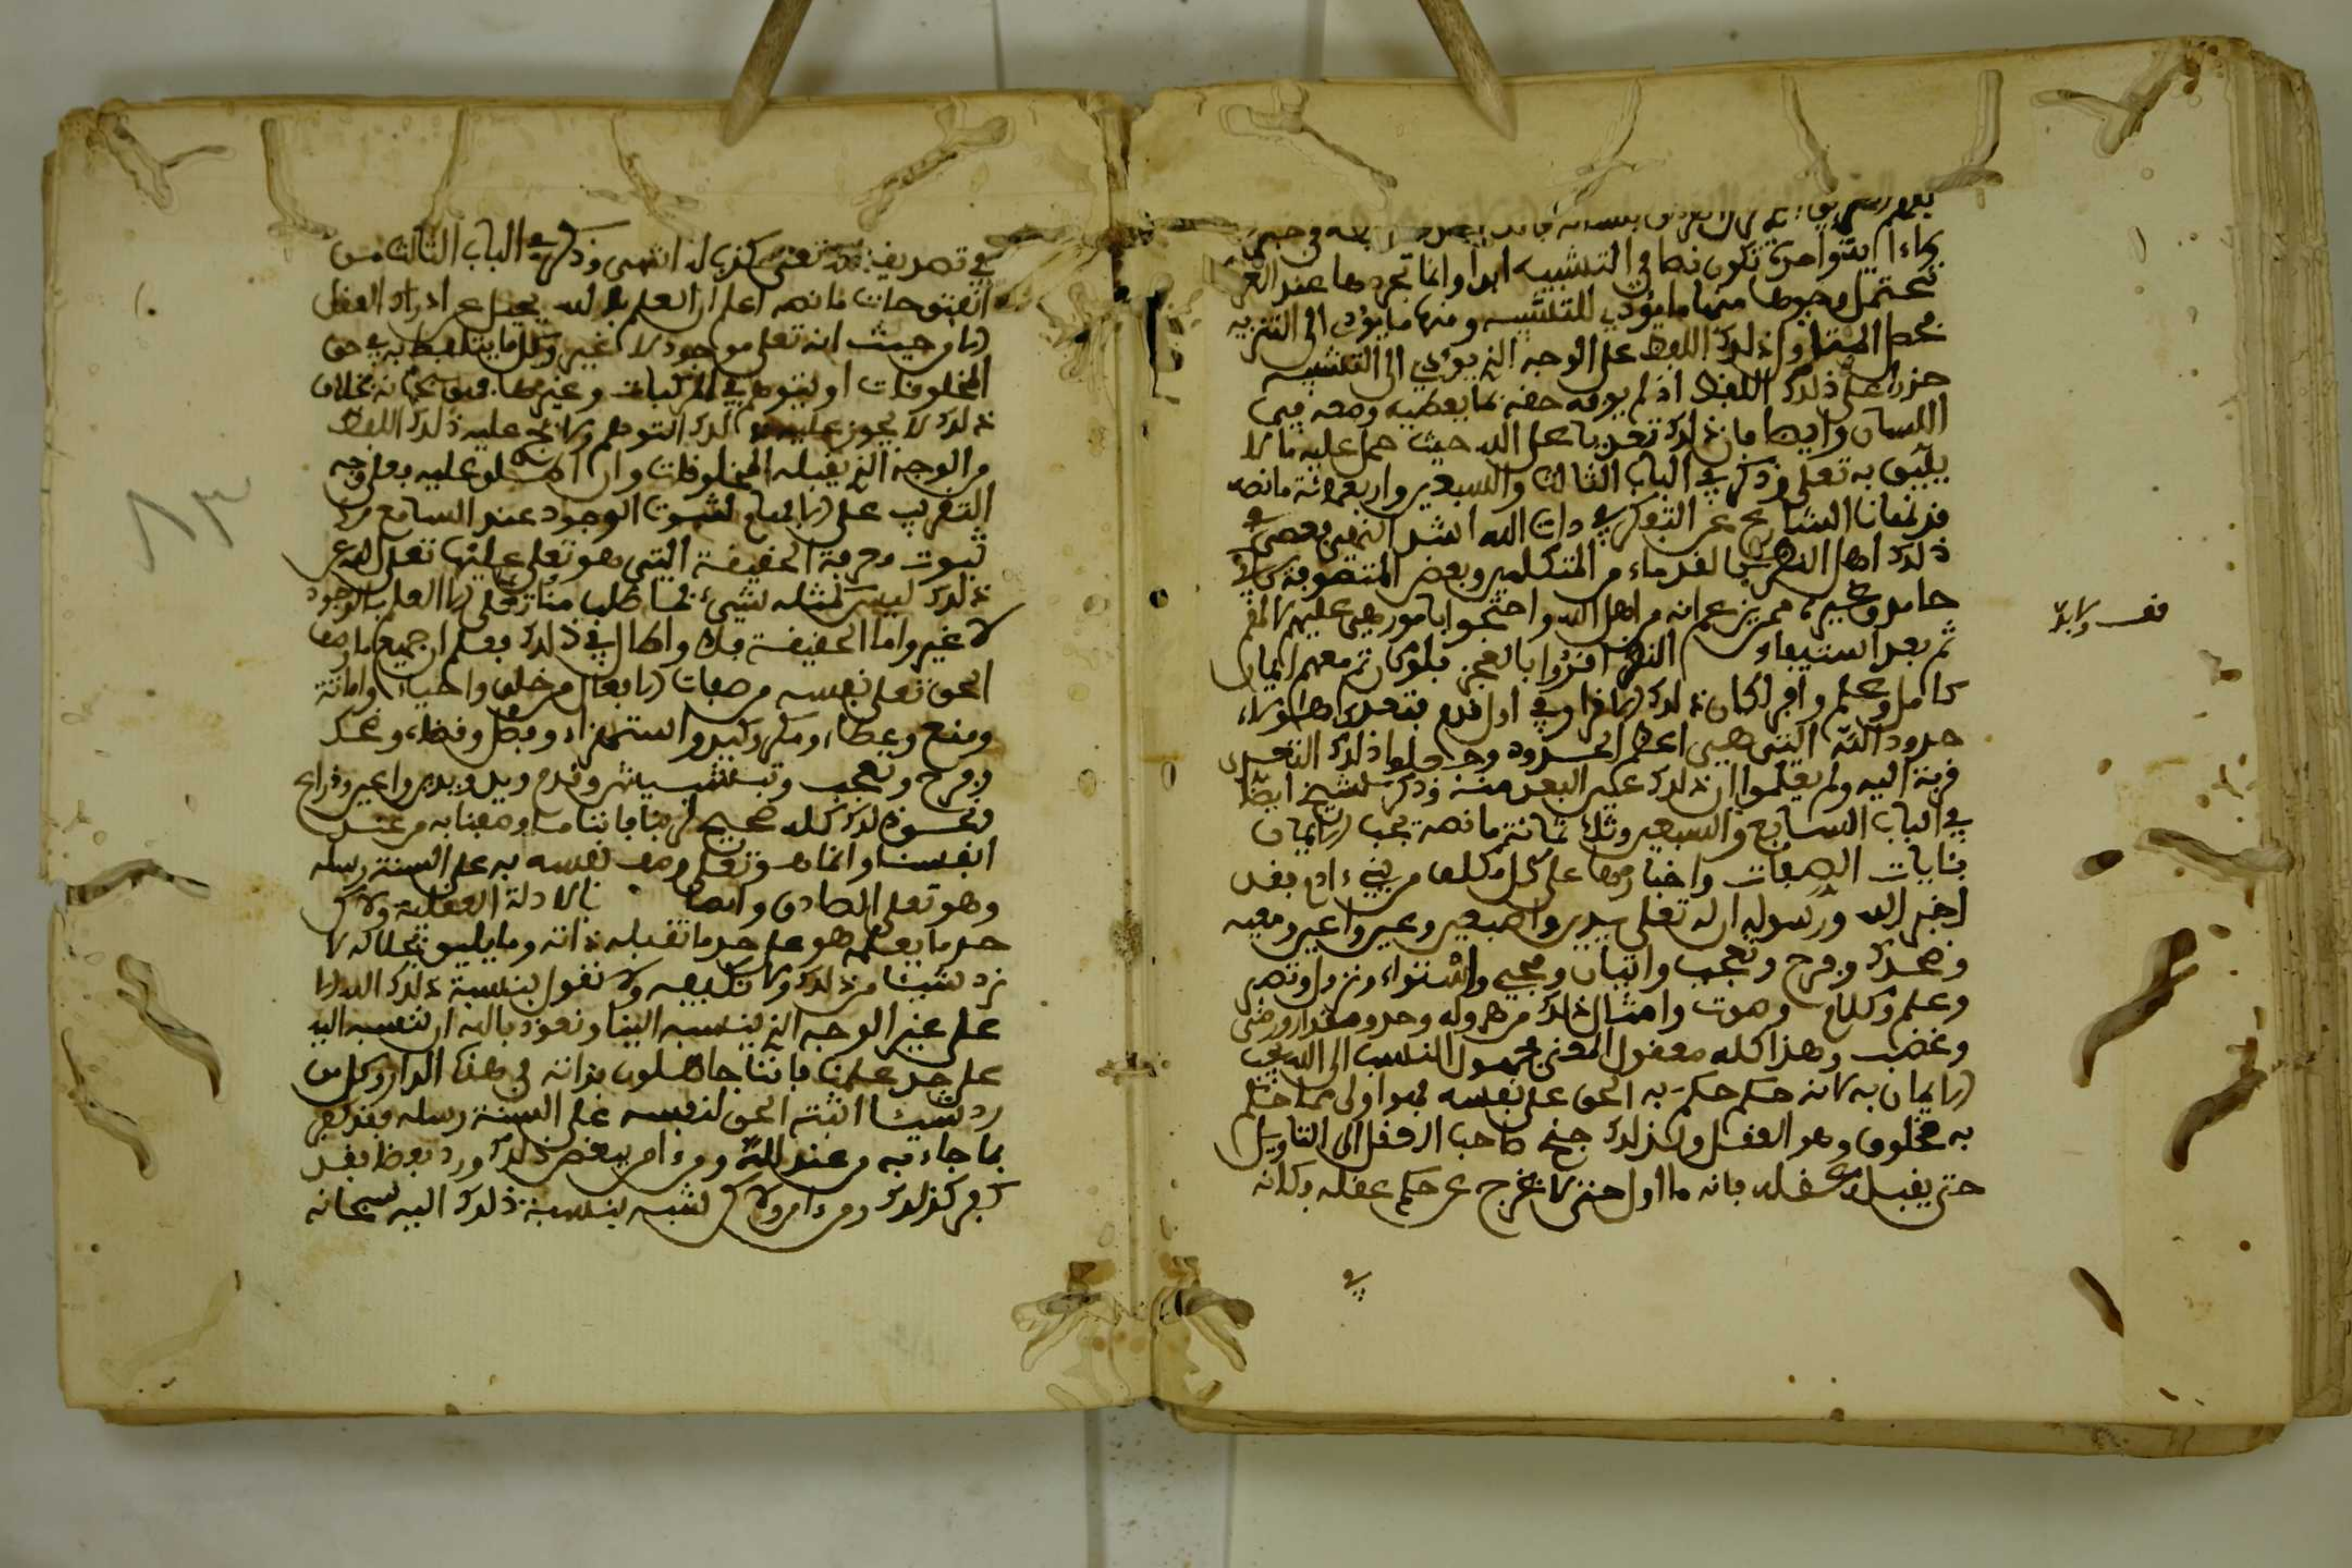 بآية واحدة تكون نصا في التشبيه ابدا وانما تجدها عند العرب
تحتمل وجوها منها ما يؤدي للتشبيه ومنها ما يؤدي الى التنزيه
فحمل المتأول ذلك اللفظ على الوجه الذي يؤدي الى التشبيه
جور على ذلك اللفظ اذ لم يوفه حقه بما يعطيه وضعه في
اللسان وايضا فان ذلك تعد على الله حيث حمل عليه ما لا
يليق به تعلى وذكر في الباب الثالث والسبعين واربعمائة ما نصه
قد نهانا الشارع عن التفكر في ذات الله اشد النهي فعصى في
ذلك اهل النظر من القدماء من المتكلمين وبعض المتصوفة كابي
حامد وغيره ممن يزعم انه من اهل الله واحتجوا بامور هي عليهم لا لهم
ثم بعد استيفاء النظر اقروا بالعجز فلو كان ثم معهم ايمان
كامل وعلم وافر لكان ذلك الاقرار في اول قدم فتعدى هؤلاء
حدود الله التي هي اعظم الحدود وجعلوا ذلك التعدي
قربة اليه ولم يعلموا ان ذلك عين البعد منه وذكر الشيخ ايضا
في الباب السابع والسبعين وثلاثمائة ما نصه يجب الايمان
بايات الصفات واخبارها على كل مكلف من بني ءادم فقد
اخبر الله ورسوله ان له تعلى يدين واصبعين وعين واعين ومعية
وضحك وفرح وتعجب واتيان ومجيء واستواء ونزول وبصر
وعلم وكلام وصوت وامثال ذلك من هرولة وحد ومقدار ورضى
وغضب وهذا كله معقول المعنى مجهول النسب الى الله يجب
الايمان به لانه حكم حكم به الحق على نفسه فهو اولى مما حكم
به مخلوق وهو العقل ولذلك جنح صاحب العقل الى التاويل
حتى يقبله عقله فانه ما اول حتى لا يخرج عن حكم عقله وكانه
في
قف ولابد
في تصريف الله تعلى كذب له انتهى وذكر في الباب الثالث من
الفتوحات ما نصه اعلم ان العلم بالله يجل عن ادراك العقل
الا من حيث انه تعلى موجود لا غير وكل ما يتلفظ به في حق
المخلوقات او يتوهم في المركبات وغيرها فهو سبحانه بخلاف
ذلك لا يجوز عليه ذلك التوهم ولا يجري عليه ذلك اللفظ
من الوجه الذي يقبله المخلوقات وان اطلق عليه فعلى وجه
التقريب على الافهام لثبوت الوجود عند السامع لا
ثبوت معرفة الحقيقة التي هو تعلى عليها تعلى الله عن
ذلك ليس كمثله شيء فما طلب منا تعلى الا العلم بالوجود
لا غير واما الحقيقة فلا واطال في ذلك فعلم ان جميع ما وصف
الحق تعلى نفسه من صفات الافعال من خلق واحياء واماتة
ومنع وعطاء ومكر وكيد واستهزاء وفصل وقضاء وضحك
وفرح وتعجب وتبشبش وقدم ويد ويدين واعين وذراع
ونحو ذلك كله صحيح لربنا فاننا ما وصفناه به من عند
انفسنا وانما هو تعلى وصف نفسه به على السنة رسله
وهو تعلى الصادق وايضا بالادلة العقلية ولاكن
حد ما يعلمه هو على حد ما تقبله ذاته وما يليق بجلاله لا
نرد شيئا من ذلك ولا نكيفه ولا نقول بنسبة ذلك الله الا
على غير الوجه الذي ينسبه الينا ونعوذ بالله ان ننسبه اليه
على حد علمنا فاننا جاهلون بذاته في هذه الدار وكل من
رد شيئا اثبته الحق لنفسه على السنة رسله فقد كفر
بما جاء به من عند الله ومن ءامن ببعض ذلك ورد بعضا فقد
كفر كذلك ومن ءامن ولاكن شبه بنسبة ذلك اليه سبحانه